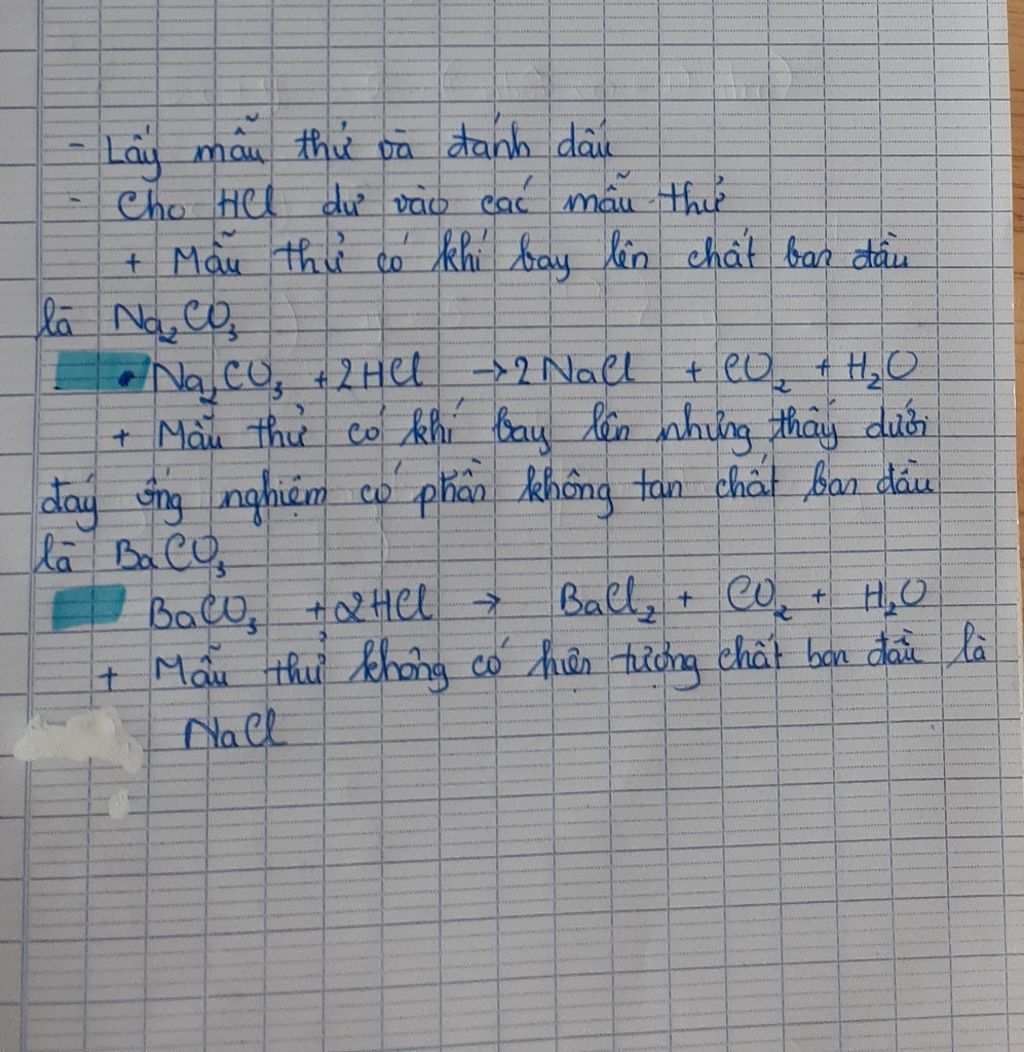 - Lấy mẫu thử và đánh dấu
- Cho HCl dư vào các mẫu thử
+ Mẫu thử có khí bay lên chất ban đầu
là Na₂CO₃
• Na₂CO₃ + 2HCl → 2NaCl + CO₂ + H₂O
+ Mẫu thử có khí bay lên nhưng thấy dưới
đáy ống nghiệm có phần không tan chất ban đầu
là BaCO₃
BaCO₃ + 2HCl → BaCl₂ + CO₂ + H₂O
+ Mẫu thử không có hiện tượng chất ban đầu là
NaCl